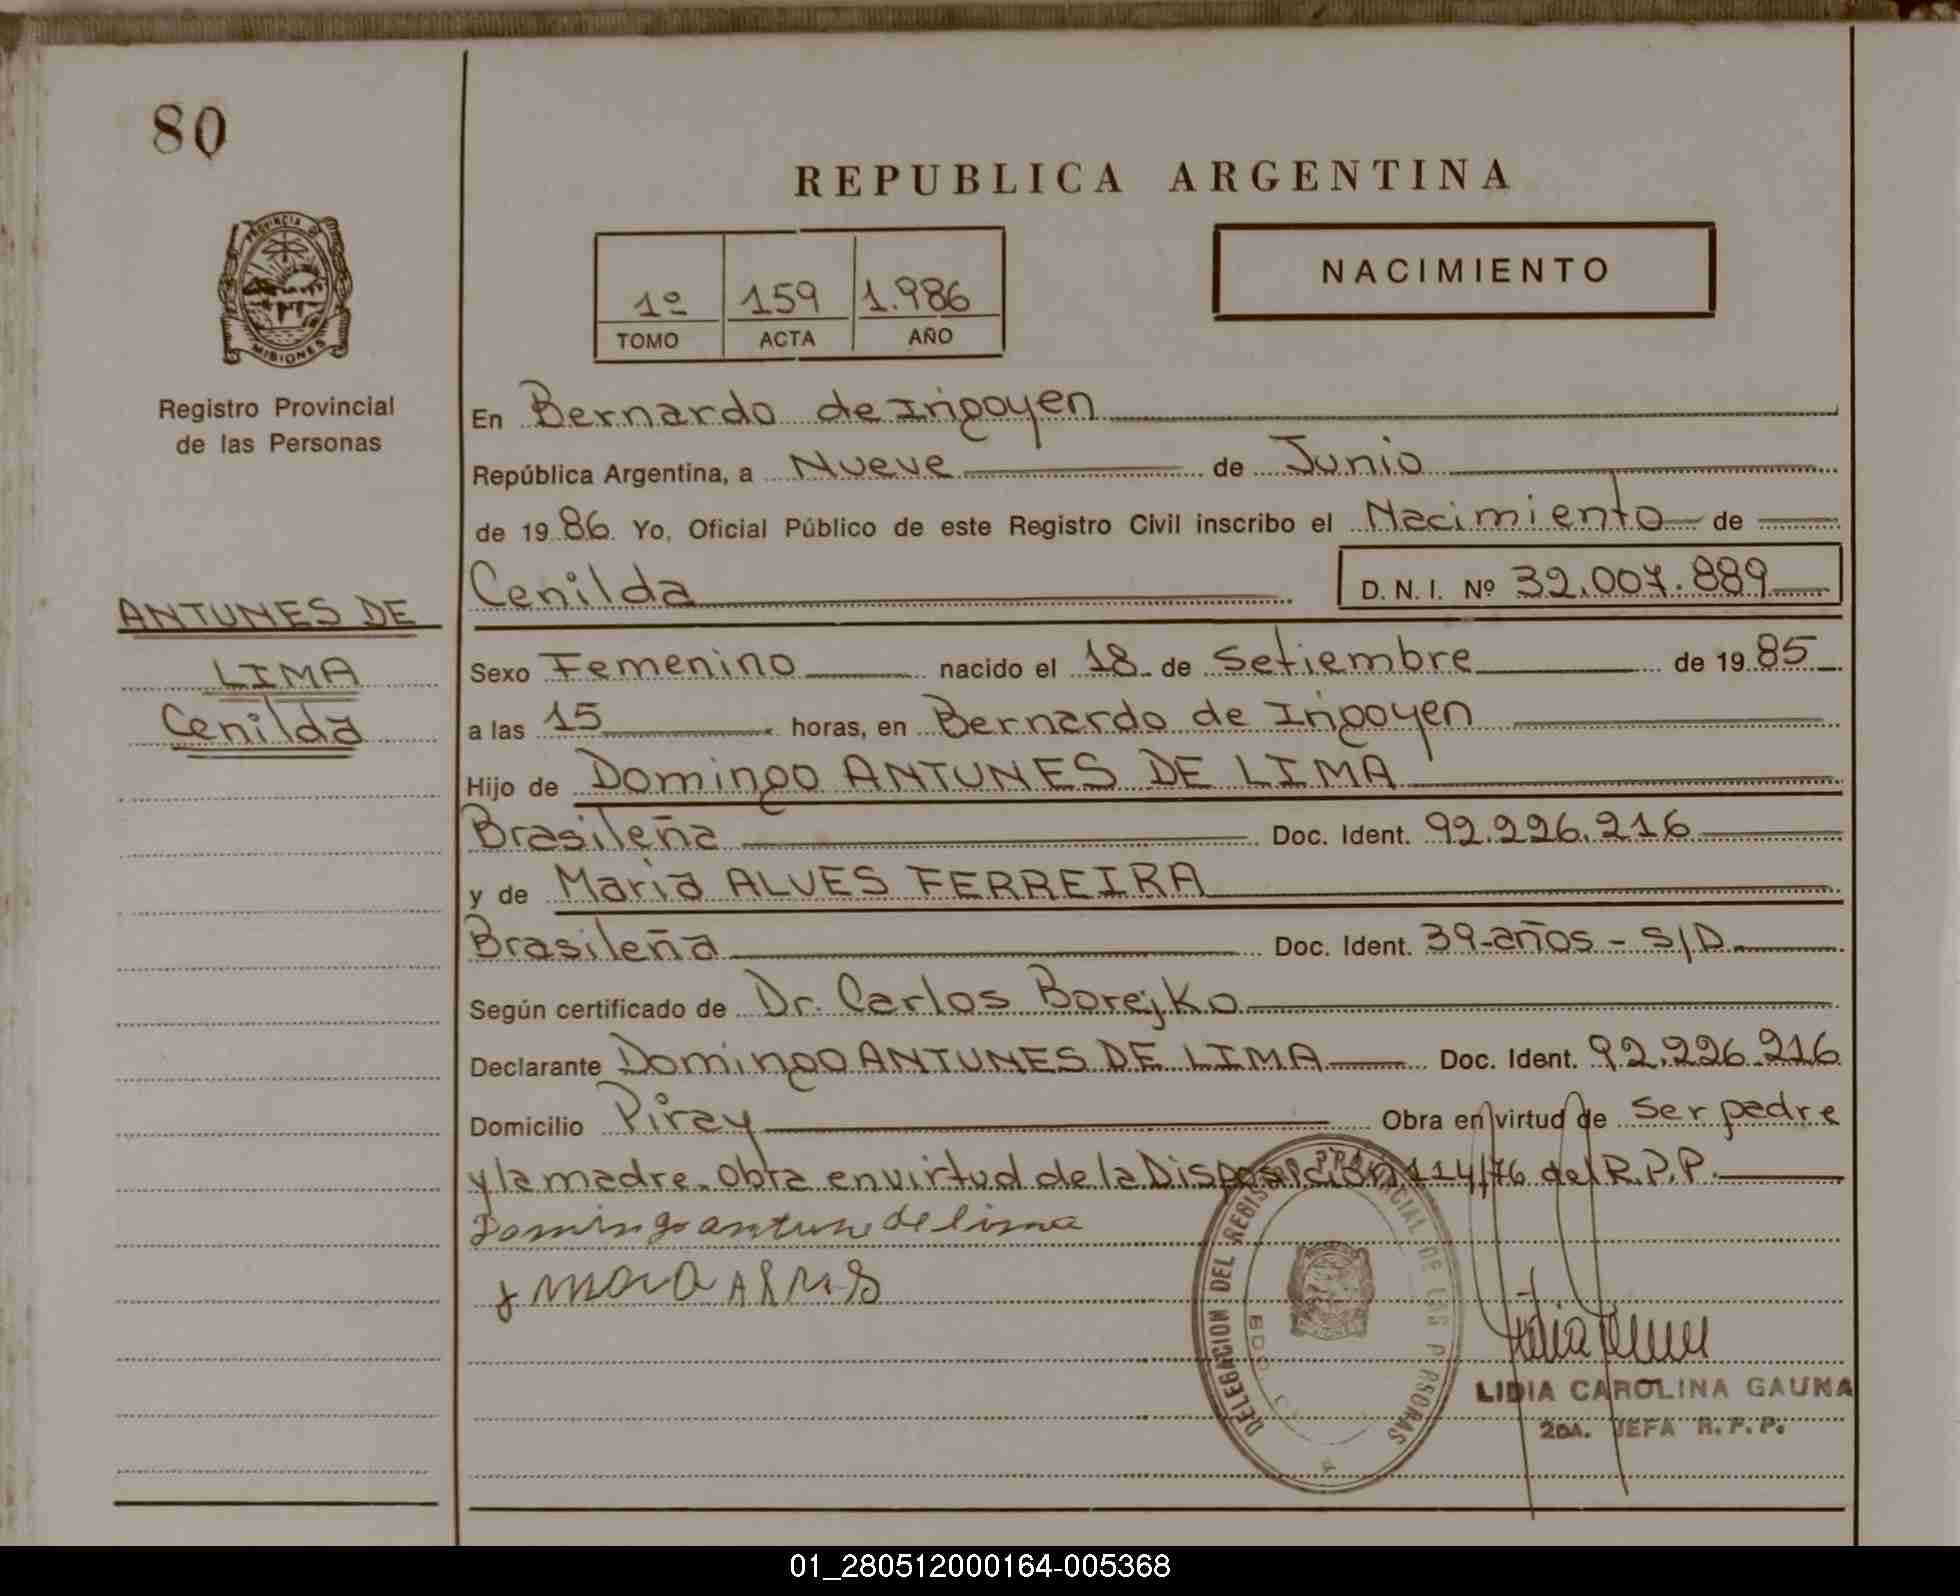 80
REPUBLICA ARGENTINA
PROVINCIA D
MISIONES
1º 159 1.986
TOMO ACTA AÑO
NACIMIENTO
Registro Provincial
de las Personas
En Bernardo de Irigoyen
República Argentina, a Nueve de Junio
de 19 86. Yo, Oficial Público de este Registro Civil inscribo el Nacimiento de
Cenilda D. N. I. Nº 32.007.889
ANTUNES DE
LIMA
Cenilda
Sexo Femenino nacido el 18 de Setiembre de 19 85
a las 15 horas, en Bernardo de Irigoyen
Hijo de Domingo ANTUNES DE LIMA
Brasileña Doc. Ident. 92.226.216
y de Maria ALVES FERREIRA
Brasileña Doc. Ident. 39-años - S/D.
Según certificado de Dr. Carlos Borejko
Declarante Domingo ANTUNES DE LIMA Doc. Ident. 92.226.216
Domicilio Piray Obra en virtud de ser padre
y la madre. Obra en virtud de la Disposición 114/76 del R.P.P.
Domingo antune de lima
DELEGACION DEL REGISTRO PROVINCIAL DE LAS PERSONAS
LIDIA CAROLINA GAUNA
2DA. JEFA R.P.P.
01_280512000164-005368